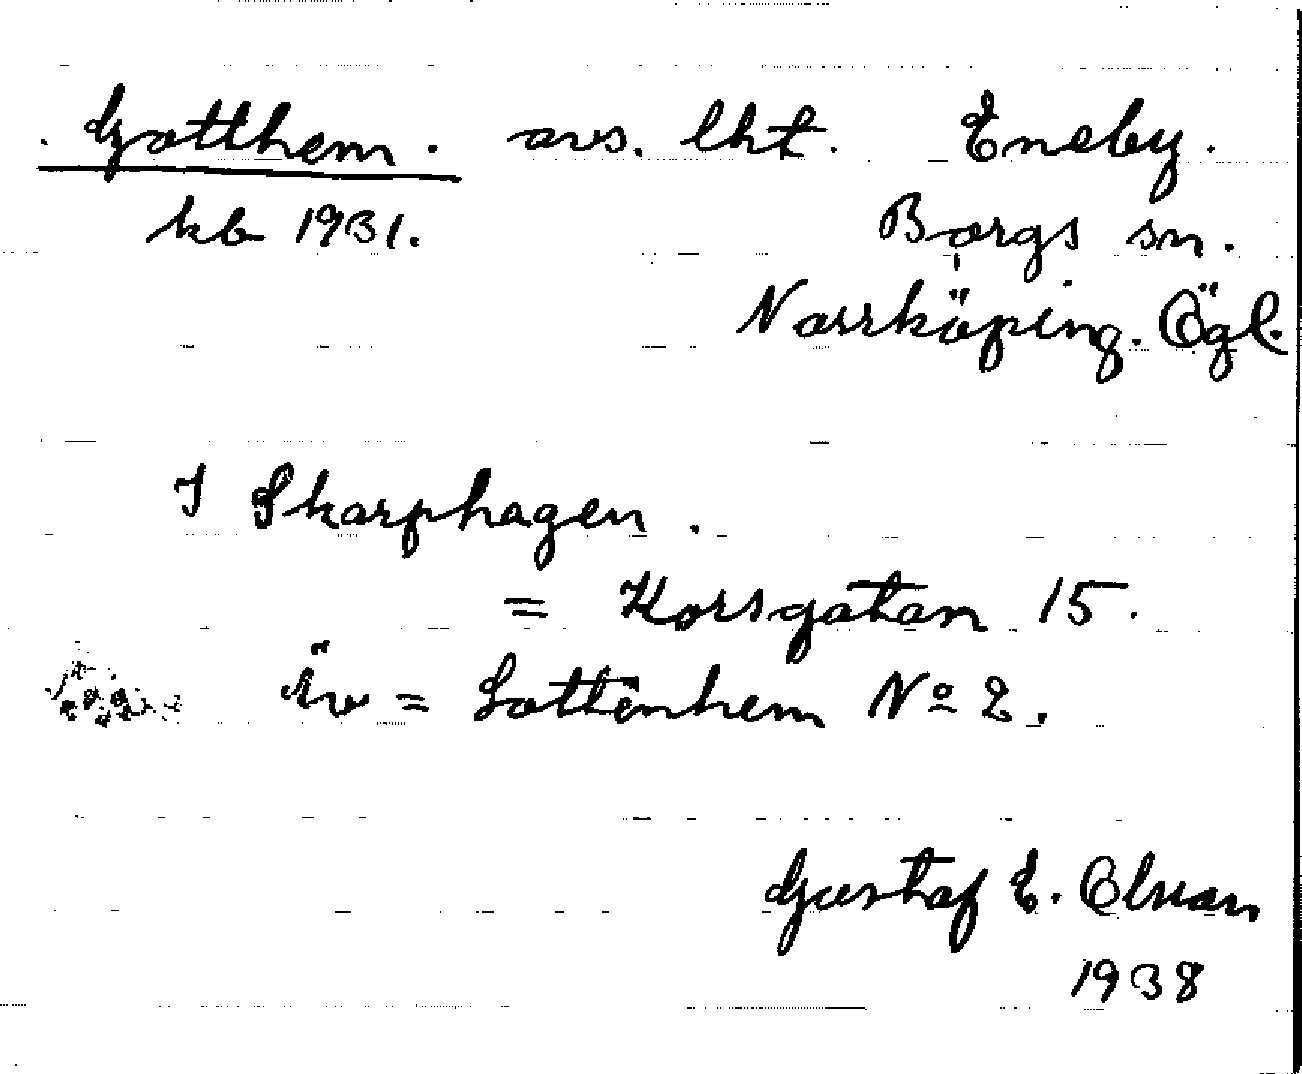 Gotthem. avs. lht. Eneby.
kb 1931. Borgs sn.
Norrköping. Ögl.
I Skarphagen.
= Korsgatan 15.
Äv = Lottenhem No 2.
Gustaf E. Olsson
1938